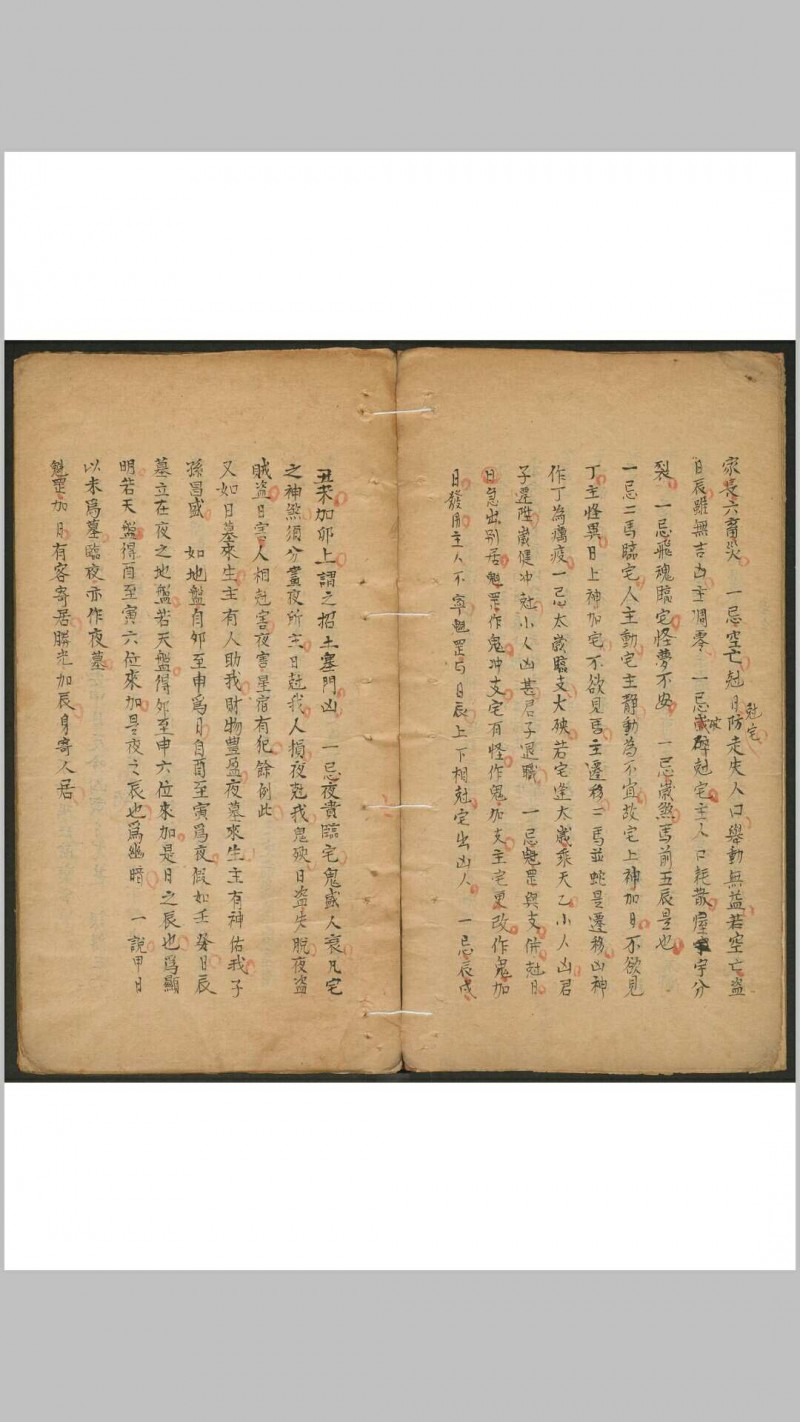 家長六畜災 一忌空亡尅日防走失人口舉動無益若空亡盜
尅宅
日辰雖無吉凶主凋零 一忌歲破碎尅宅主人口耗散屋宇分
裂 一忌飛魂臨宅怪夢不安 一忌歲煞馬前五辰是也
一忌二馬臨宅人主動宅主靜動為不宜故宅上神加日不欲見
丁主怪異日上神加宅不欲見馬主遷移二馬並蛇是遷移凶神
作丁為癘疫一忌太歲臨支大殃若宅逢太歲乘天乙小人凶君
子遷陞歲健冲尅小人凶甚君子退職 一忌魁罡與支併尅日
日急出別居魁罡作鬼冲支宅有怪作鬼加支主宅更改作鬼加
日發用主人不寧魁罡日辰上下相尅宅出凶人 一忌辰戌
丑未加卯上謂之招土塞門凶 一忌夜貴臨宅鬼盛人衰凡宅
之神煞須分晝夜所主日尅我人損夜尅我鬼殃日盜失脫夜盜
賊盜日害人相尅害夜害星宿有犯餘例此
又如日墓來生主有人助我財物豐盈夜墓來生主有神佑我子
孫昌盛 如地盤自卯至申為日自酉至寅為夜假如壬癸日辰
墓立在夜之地盤若天盤得卯至申六位來加是日之辰也為顯
明若天盤得酉至寅六位來加是夜之辰也為幽暗 一說甲日
以未為墓臨夜亦作夜墓
魁罡加日有客寄居勝光加辰身寄人居